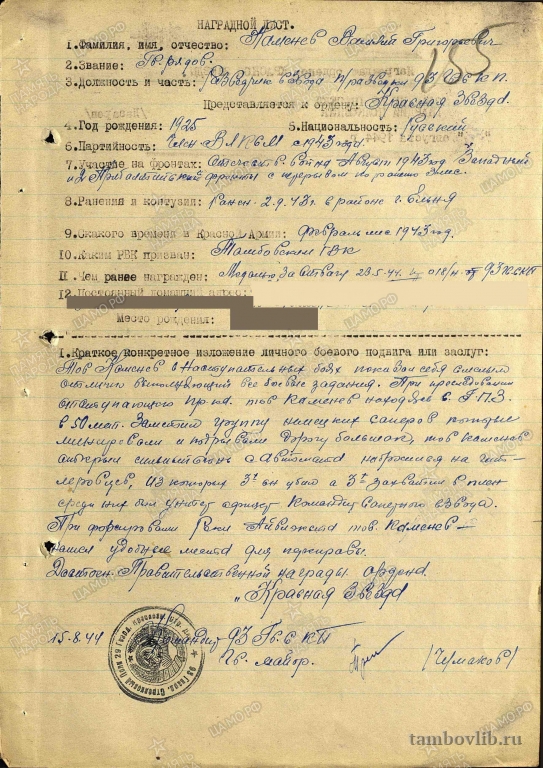 НАГРАДНОЙ ЛИСТ.
155
1.Фамилия, имя, отчество: Каменев Василий Григорьевич
2.Звание: Гв. рядов.
3.Должность и часть: Разведчик взвода 93 Гв С К П.
Представляется к ордену: Красная Звезда.
4.Год рождения: 1925 5.Национальность: Русский
6.Партийность: Член ВЛКСМ с 1943 года
7.Участие на фронтах: Отечеств. война Август 1943 год Западный
и 2 Прибалтийский фронты с перерывом по
8.Ранения и контузия: Ранен 2.9.43г. в районе г. Ельня
9.Скакого времени в Красной Армии: Февраль м-ц 1943 год.
10.Каким РВК призван: Тамбовским ГВК
11.Чем ранее награжден: Медалью „За отвагу 28.5.44. 018/н 93 Гв СКП
12.Постоянный домашний адрес:
Место рождения:
1.Краткое конкретное изложение личного боевого подвига или заслуг:
Тов Каменев в Наступательных боях показал себя смелым
отлично выполняющий все боевые задания. При преследовании
отступающего пр-ка тов Каменев находясь в Г.П.З.
в 50 мет. Заметил группу немецких саперов которые
минировали и подрывали дорогу большак, тов Каменев
открыв сильный огонь с автомата набросился на гит-
леровцев, из которых 3х он убил а 3х захватил в плен
среди них был унтер офицер Командир саперного взвода.
При форсировании Реки Айвиекста тов. Каменев —
нашел удобные места для переправы.
Достоен Правительственной награды ордена.
„Красная Звезда
15.8.44 Командир 93 Гв. С К П
Гв. майор. (Чумаков)
ЦАМО.РФ
tambovlib.ru